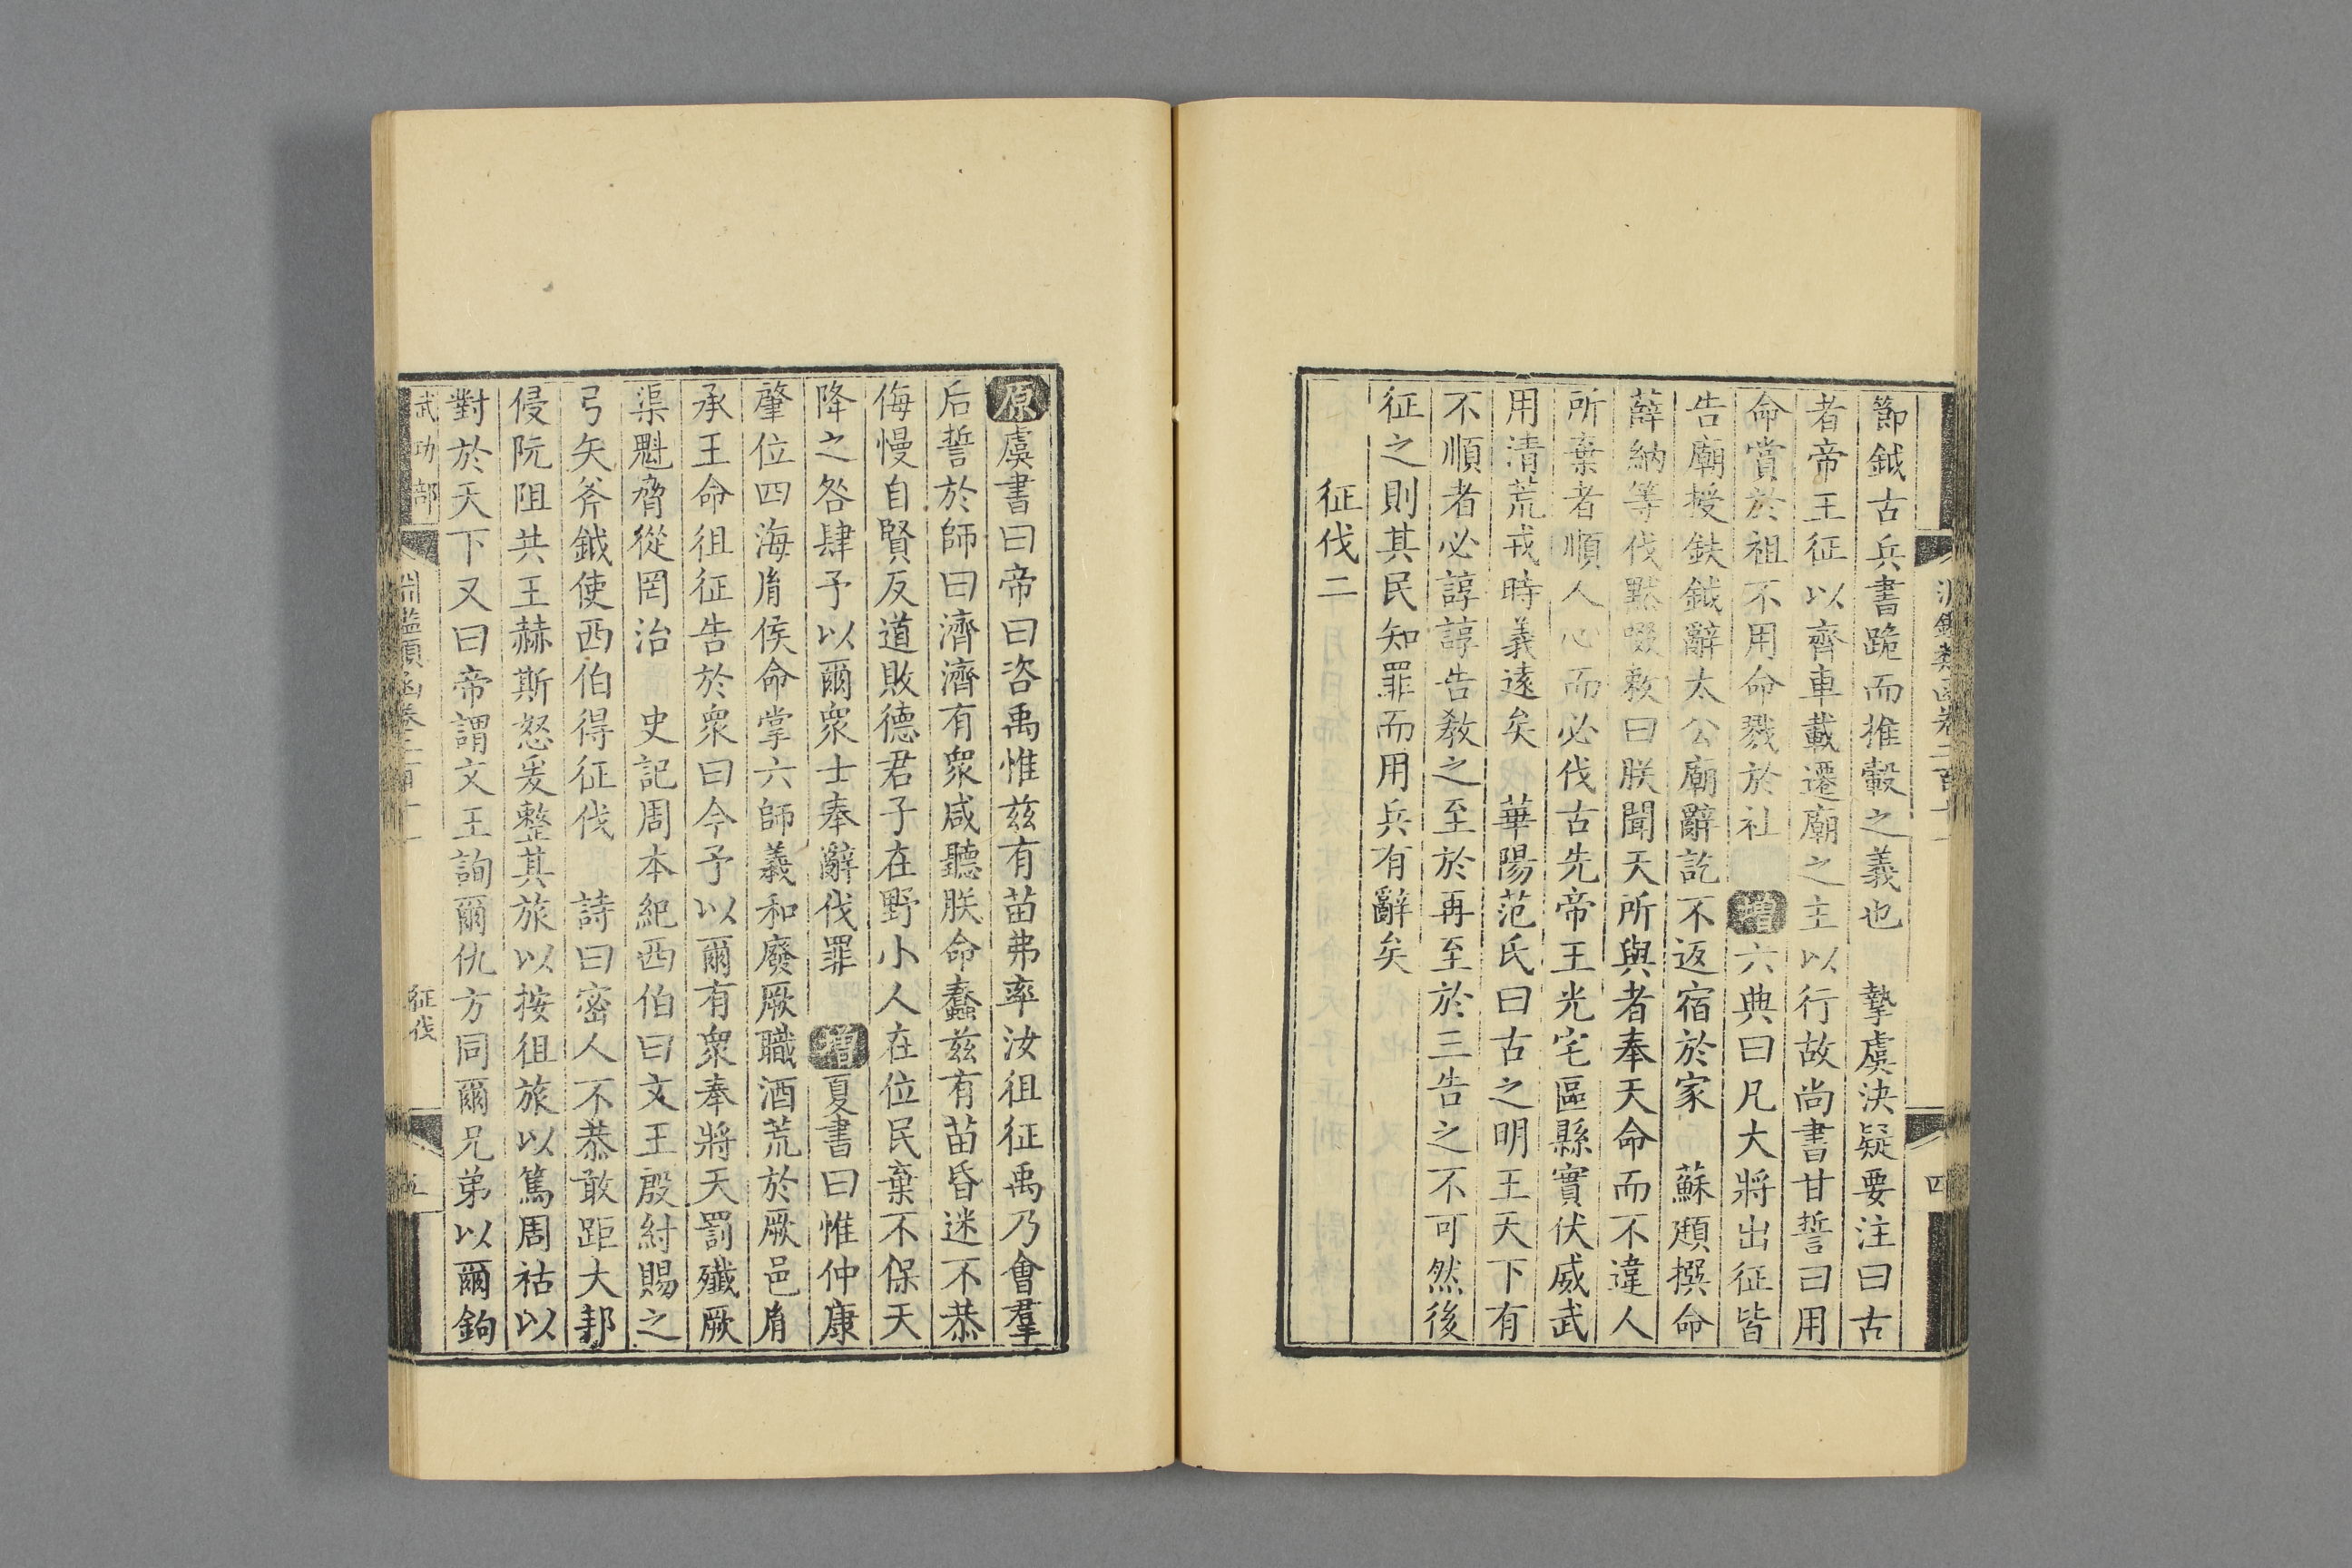 淵鑑類函卷二百十一
四
節鉞古兵書跪而推轂之義也　摯虞決疑要注曰古
者帝王征以齊車載遷廟之主以行故尚書甘誓曰用
命賞於祖不用命戮於社　增六典曰凡大將出征皆
告廟授鈇鉞辭太公廟辭訖不返宿於家　蘇頲撰命
薛納等伐默啜敕曰朕聞天所與者奉天命而不違人
所棄者順人心而必伐古先帝王光宅區縣實伏威武
用清荒戎時義遠矣　華陽范氏曰古之明王天下有
不順者必諄諄告教之至於再至於三告之不可然後
征之則其民知罪而用兵有辭矣
征伐二
原虞書曰帝曰咨禹惟兹有苗弗率汝徂征禹乃會羣
后誓於師曰濟濟有衆咸聽朕命蠢兹有苗昏迷不恭
侮慢自賢反道敗德君子在野小人在位民棄不保天
降之咎肆予以爾衆士奉辭伐罪　增夏書曰惟仲康
肇位四海胤侯命掌六師羲和廢厥職酒荒於厥邑胤
承王命徂征告於衆曰今予以爾有衆奉將天罰殲厥
渠魁脅從罔治　史記周本紀西伯曰文王殷紂賜之
弓矢斧鉞使西伯得征伐　詩曰密人不恭敢距大邦
侵阮阻共王赫斯怒爰整其旅以按徂旅以篤周祜以
對於天下又曰帝謂文王詢爾仇方同爾兄弟以爾鉤
武功部
淵鑑類函卷二百十一
征伐
五